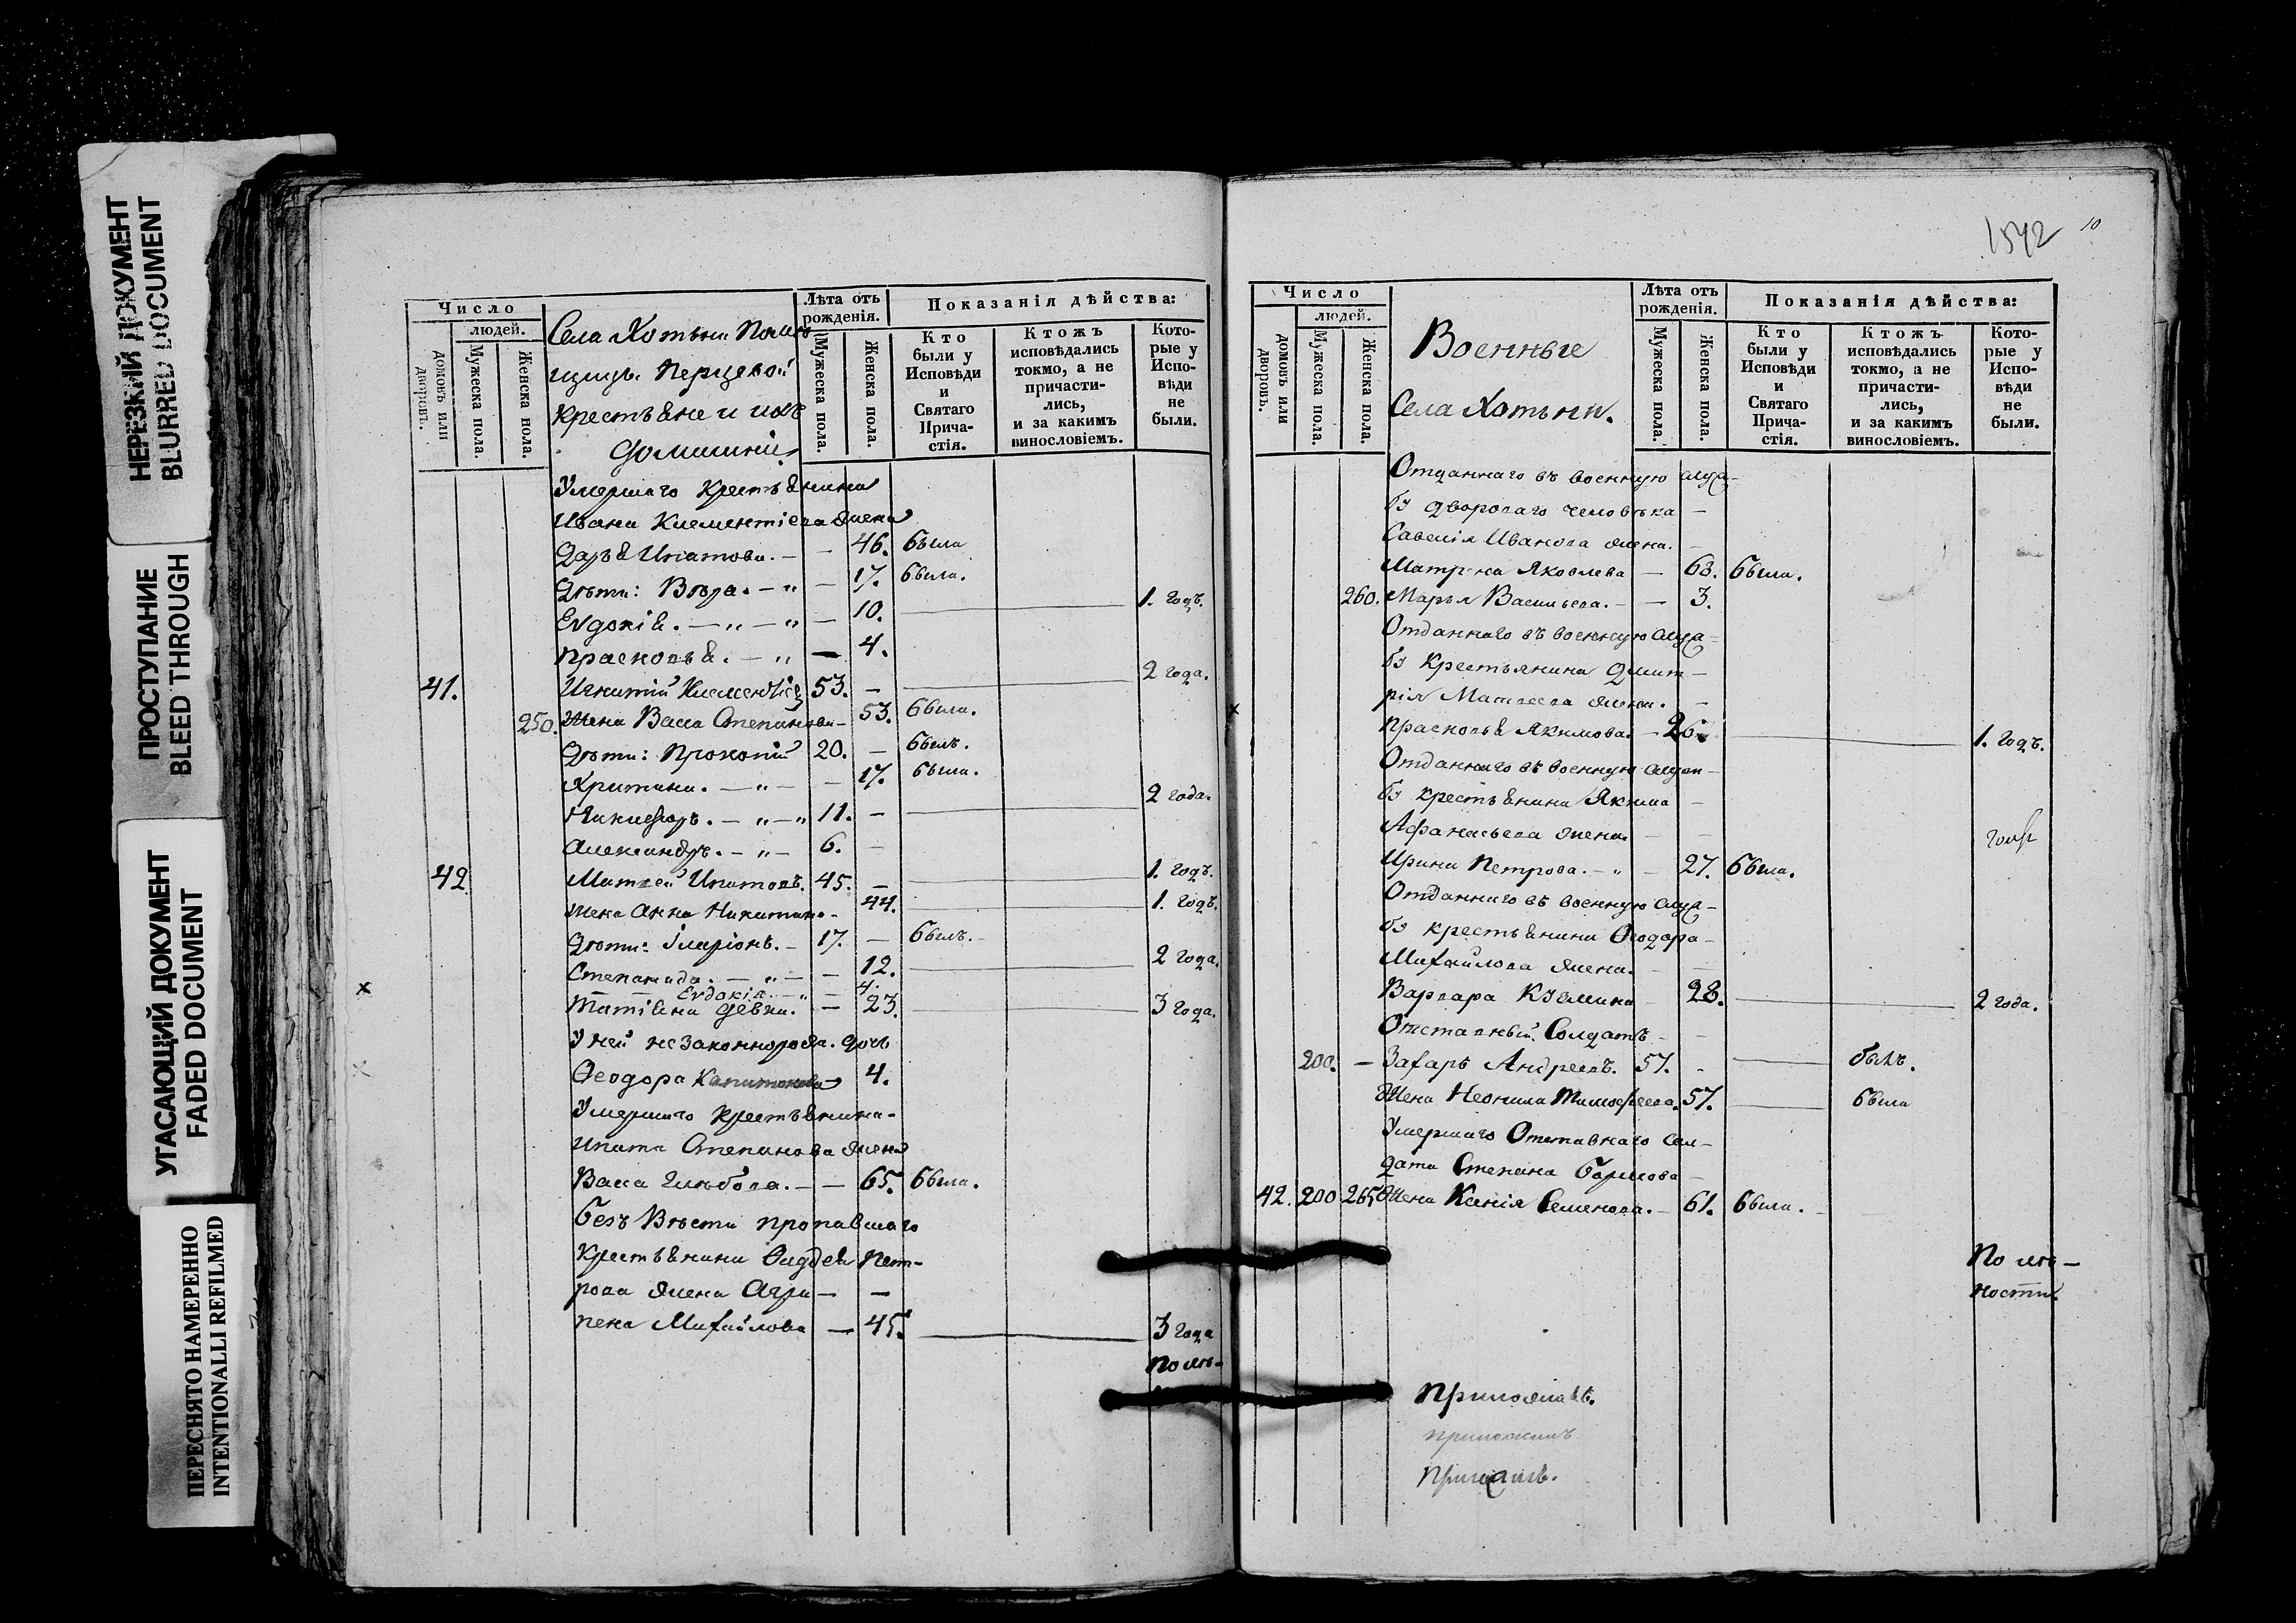 НЕРЕЗКИЙ ДОКУМЕНТ
BLURRED DOCUMENT
ПРОСТУПАНИЕ
BLEED THROUGH
УГАСАЮЩИЙ ДОКУМЕНТ
FADED DOCUMENT
ПЕРЕСНЯТО НАМЕРЕННО
INTENTIONALLI REFILMED
Число
людей.
домовъ или дворовъ.
Мужеска пола.
Женска пола.
Села Хотьни Помѣ
щицы Перцевой
крестьяне и ихъ
домашніи
Лѣта отъ рожденія.
Мужеска пола.
Женска пола.
Показанія дѣйства:
Кто были у Исповѣди и Святаго Причастія.
Ктожъ исповѣдались токмо, а не причастились, и за какимъ винословіемъ.
Которые у Исповѣди не были.
Умершаго крестьянина
Ивана Клементіева жена
Дарья Ипатова. — — 46. была
Дѣти: Вѣра. — „ — 17. была.
Evдокія. — „ — „ — 10. 1. годъ.
Прасковья. — „ — 4.
41. Игнатій Клементіевъ 53. — 2 года.
250. Жена Васса Степанова — 53. была.
Дѣти: Прокопій 20. — былъ.
Христина. — „ — — 17. была.
Никифоръ. — „ — „ 11. — 2 года.
Александръ. — „ — 6. —
42 Матвей Ипатовъ. 45. — 1. годъ.
жена Анна Никитина — 44. 1. годъ.
Дѣти: Іларіонъ. — 17. — былъ.
Степанида. — „ — — 12. 2 года.
Evдокія. — „ — 4.
Татіана девка. — 23. 3 года.
У ней незаконнорожд. дочь
Ѳеодора Капитонова 4.
Умершаго крестьянина
Ипата Степанова жена
Васса Глѣбова. — — 65. была.
Безъ Вѣсти пропавшаго
крестьянина Ѳаддея Пет-
рова жена Агри — —
пена Михайлова — 45. 3 года
По лѣ-
1542
10
Число
людей.
домовъ или дворовъ.
Мужеска пола.
Женска пола.
Военные
Села Хотьни.
Лѣта отъ рожденія.
Мужеска пола.
Женска пола.
Показанія дѣйства:
Кто были у Исповѣди и Святаго Причастія.
Ктожъ исповѣдались токмо, а не причастились, и за какимъ винословіемъ.
Которые у Исповѣди не были.
Отданнаго въ военную служ-
бу двороваго человѣка —
Савелія Иванова жена. —
Матрена Яковлева — 63. была.
260. Марья Васильева. — — 3.
Отданнаго въ военную служ-
бу крестьянина Дмит-
рія Матвеева жена. —
Прасковья Якимова. — 26. 1. годъ.
Отданнаго въ военную служ-
бу крестьянина Якима —
Афанасьева жена. — —
Ирина Петрова. — „ — 27. была.
Отданнаго въ военную служ-
бу крестьянина Ѳеодора —
Михайлова жена. — —
Варвара Кузмина — 28. 2 года.
Отставный Солдатъ — —
200. — Захаръ Андреевъ. 57. - былъ.
Жена Неонила Тимофеева. 57. была
Умершаго Отставнаго Сол-
дата Степана Борисова —
42. 200 265 Жена Ксенія Семенова. — 61. была.
По лѣ-
ности.
Приложилъ.
приложилъ